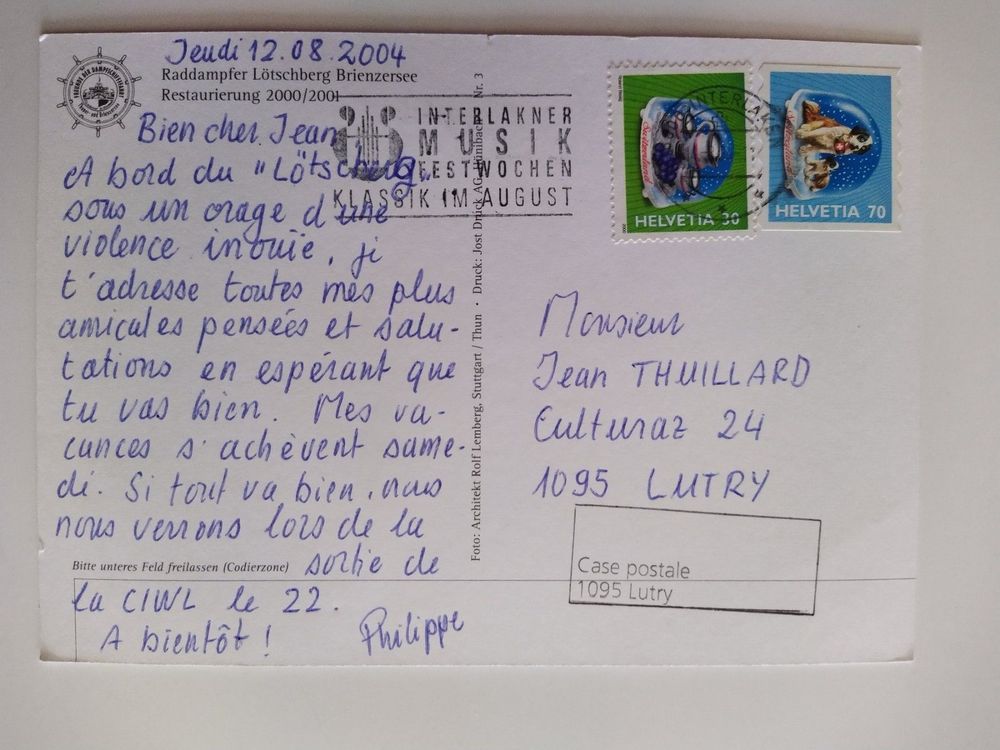 Jeudi 12.08.2004
Raddampfer Lötschberg Brienzersee
Restaurierung 2000/2001
Bien cher Jean
A bord du "Lötschberg,
sous un orage d'une
violence inouïe, je
t'adresse toutes mes plus
amicales pensées et salu-
tations en espérant que
tu vas bien. Mes va-
cances s'achèvent same-
di. Si tout va bien, nous
nous verrons lors de la
Bitte unteres Feld freilassen (Codierzone)
sortie de
la CIWL le 22.
A bientôt !
Philippe
INTERLAKNER
MUSIK
FESTWOCHEN
KLASSIK IM AUGUST
Foto: Architekt Rolf Lemberg, Stuttgart / Thun · Druck: Jost Druck AG, Hünibach Nr. 3
HELVETIA 30
HELVETIA 70
INTERLAKEN
Monsieur
Jean THUILLARD
Culturaz 24
1095 LUTRY
Case postale
1095 Lutry